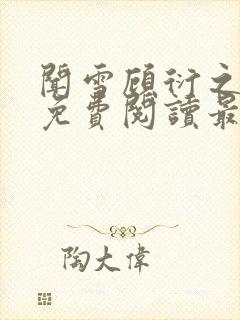 聞雪顧衍之
免費閱讀最
陶大偉